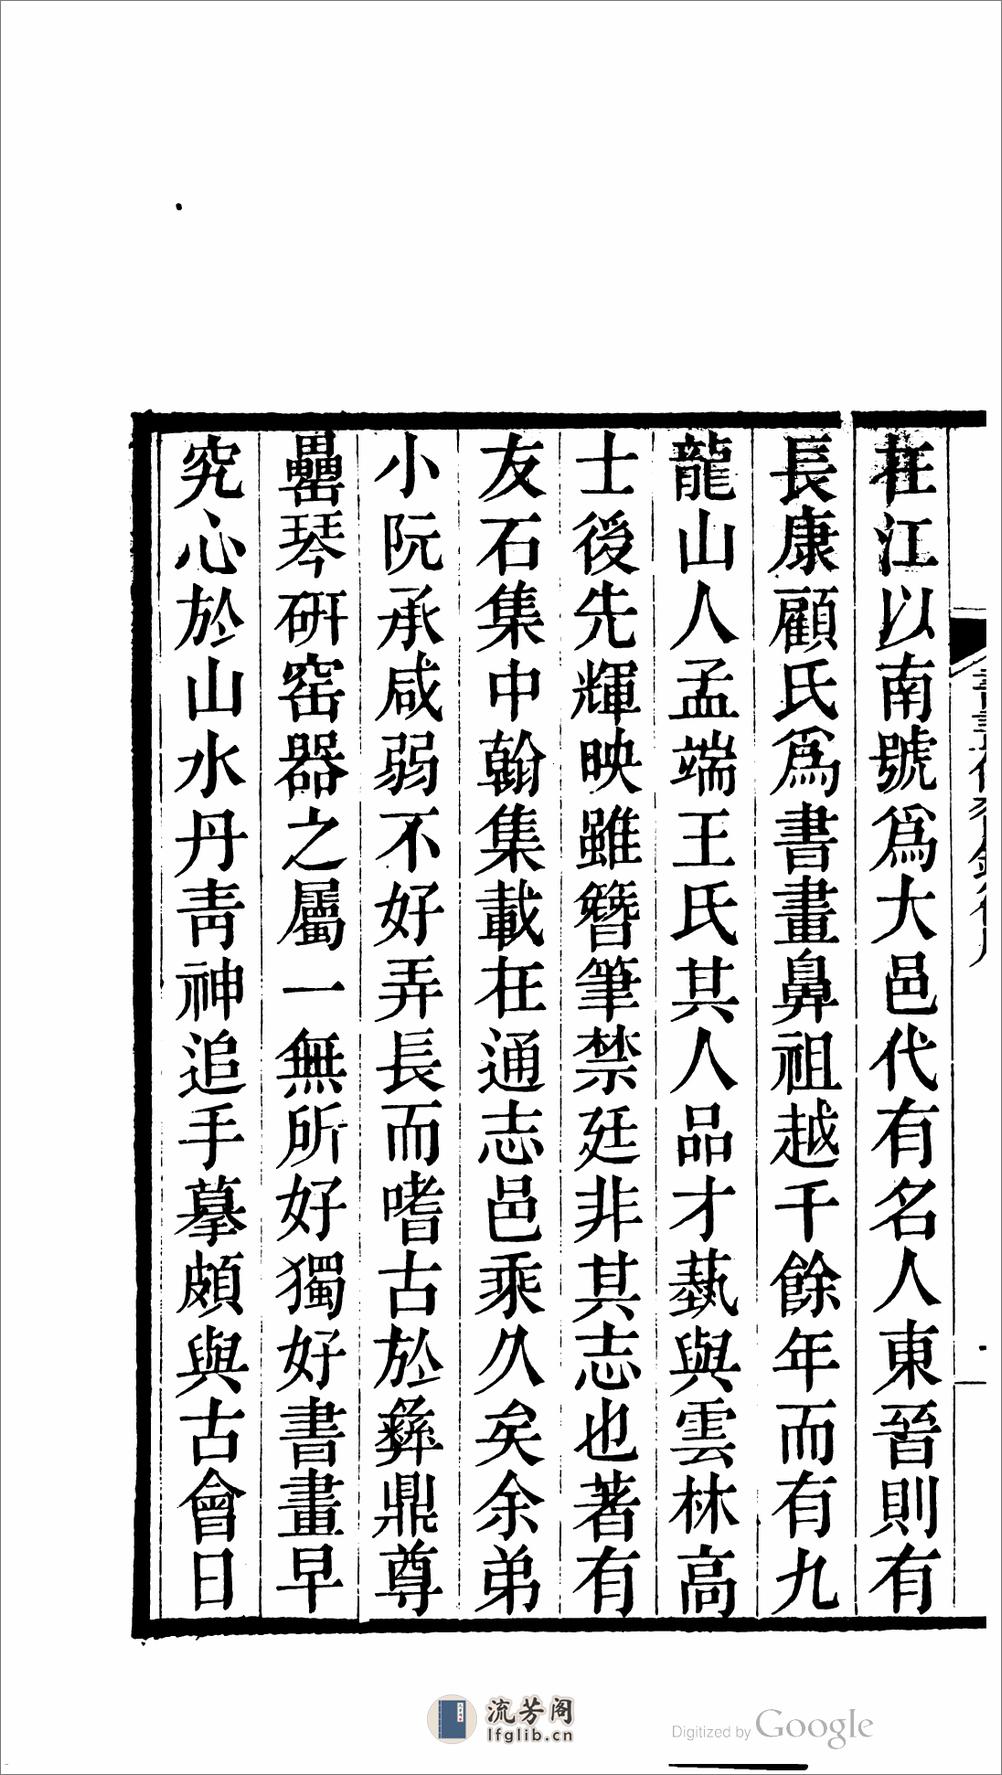 在江以南號爲大邑代有名人東晉則有
長康顧氏爲書畫鼻祖越千餘年而有九
龍山人孟端王氏其人品才藝與雲林高
士後先輝映雖簪筆禁廷非其志也著有
友石集中翰集載在通志邑乘久矣余弟
小阮承咸弱不好弄長而嗜古於彝鼎尊
罍琴研窑器之屬一無所好獨好書畫早
究心於山水丹靑神追手摹頗與古會日
流芳阁
lfglib.cn
Digitized by Google